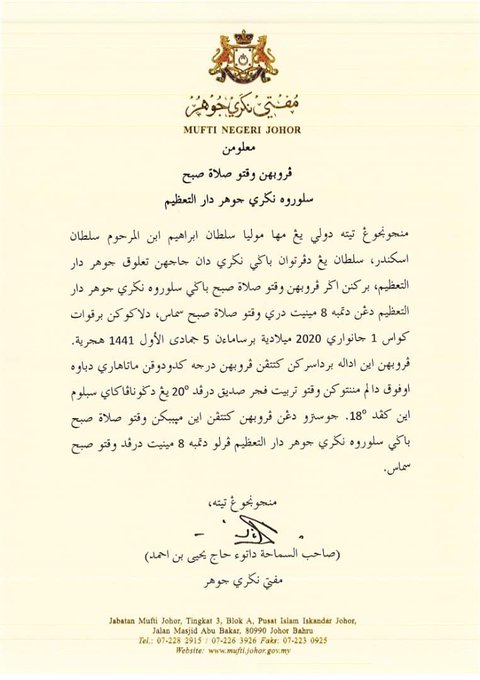 مفتي نڬري جوهر
MUFTI NEGERI JOHOR
معلومن
ڤروبهن وقتو صلاة صبح
سلوروه نڬري جوهر دار التعظيم
منجونجوڠ تيته دولي يڠ مها موليا سلطان ابراهيم ابن المرحوم سلطان
اسكندر، سلطان يڠ دڤرتوان باڬي نڬري دان جاجهن تعلوق جوهر دار
التعظيم، بركنن اڬر ڤروبهن وقتو صلاة صبح باڬي سلوروه نڬري جوهر دار
التعظيم دڠن دتمبه 8 مينيت دري وقتو صلاة صبح سماس، دلاكوكن برقوات
كواس 1 جانواري 2020 ميلادية برساماءن 5 جمادى الأول 1441 هجرية.
ڤروبهن اين اداله برداسركن كتتڤن ڤروبهن درجه كدودوقن ماتاهاري دباوه
اوفوق دالم مننتوكن وقتو تربيت فجر صديق درڤد 20º يڠ دڬوناڤاكاي سبلوم
اين كڤد 18º. جوسترو دڠن ڤروبهن كتتڤن اين مڽببكن وقتو صلاة صبح
باڬي سلوروه نڬري جوهر دار التعظيم ڤرلو دتمبه 8 مينيت درڤد وقتو صبح
سماس.
منجونجوڠ تيته،
(صاحب السماحة داتوء حاج يحيى بن احمد)
مفتي نڬري جوهر
Jabatan Mufti Johor, Tingkat 3, Blok A, Pusat Islam Iskandar Johor,
Jalan Masjid Abu Bakar, 80990 Johor Bahru
Tel.: 07-228 2915 / 07-226 3926 Faks: 07-223 0925
Website: www.mufti.johor.gov.my